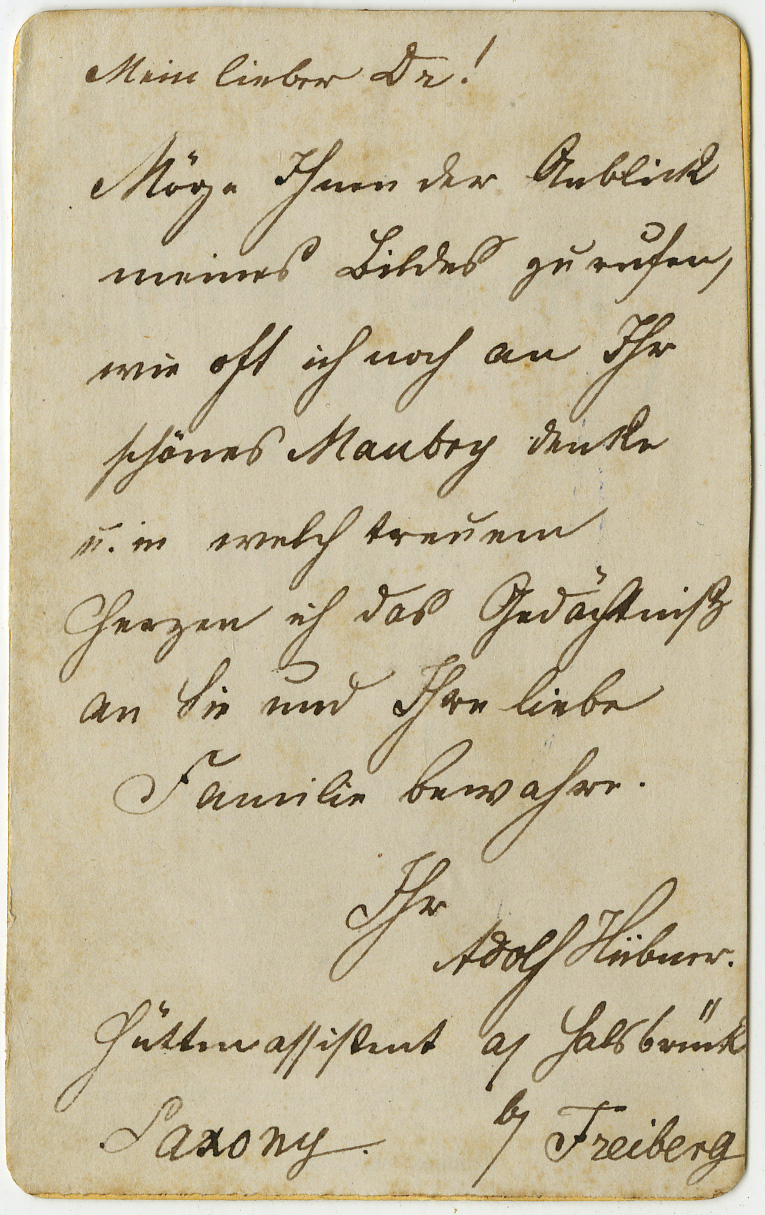 Mein lieber Dr!
Möge Ihnen der Anblick
meines Bildes zurufen,
wie oft ich noch an Ihr
schönes Maubey denke
u. in welch treuem
Herzen ich das Gedächtniß
an Sie und Ihre liebe
Familie bewahre.
Ihr
Adolf Hübner.
Hüttenassistent a/ Halsbrück
Saxony. b/ Freiberg